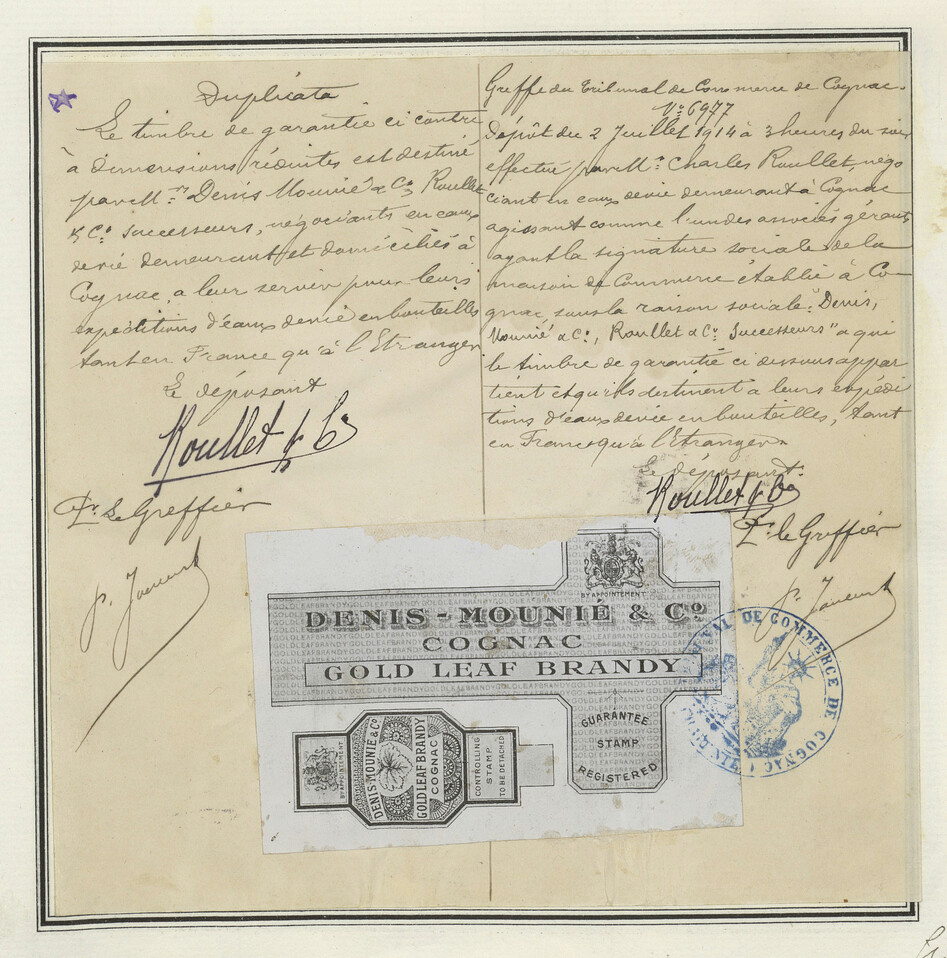 Duplicata
Le timbre de garantie ci contre
à dimensions réduites est destiné
par M.rs Denis Mounié & Co Roullet
& Co Successeurs, négociants en eaux
de vie demeurant et domiciliés à
Cognac, a leur servir pour leurs
expéditions d'eaux de vie en bouteilles
tant en France qu'à l'Etranger
Le déposant
Roullet & Co
Pr. le Greffier
Greffe du Tribunal de Commerce de Cognac.
No 6977
Dépôt du 2 Juillet 1914 à 3 heures du soir
effectué par M.r Charles Roullet, négo
ciant en eaux de vie demeurant à Cognac
agissant comme l'un des associés gérants
ayant la signature sociale de la
maison de Commerce établie à Co-
gnac sous la raison sociale "Denis,
Mounié & Co, Roullet & Co Successeurs" a qui
le timbre de garantie ci dessous appar
tient et qu'ils destinent a leurs expédi
tions d'eaux de vie en bouteilles, tant
en France qu'à l'Etranger.
Le déposant
Roullet & Co
Pr. le Greffier
BY APPOINTEMENT
DENIS-MOUNIÉ & Co
COGNAC
GOLD LEAF BRANDY
GUARANTEE
STAMP
REGISTERED
BY APPOINTEMENT
DENIS-MOUNIE & Co
GOLD LEAF BRANDY
COGNAC
CONTROLLING
STAMP
TO BE DETACHED
DE COMMERCE DE COGNAC